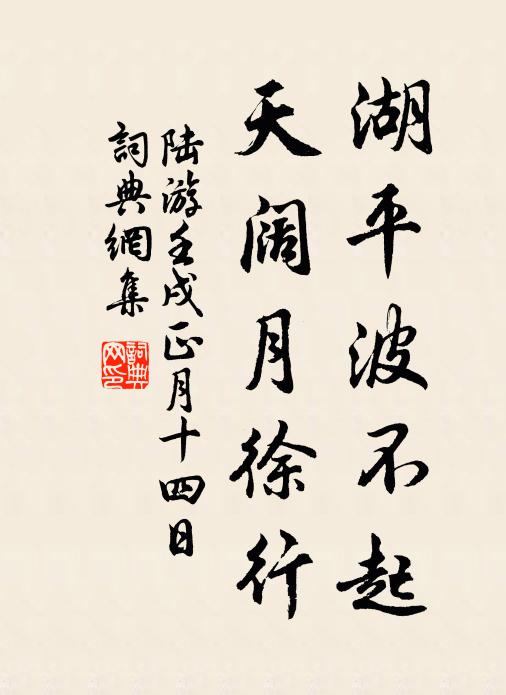 湖平波不起
天阔月徐行
陆游壬戌正月十四日
詞典網集
詞典网印